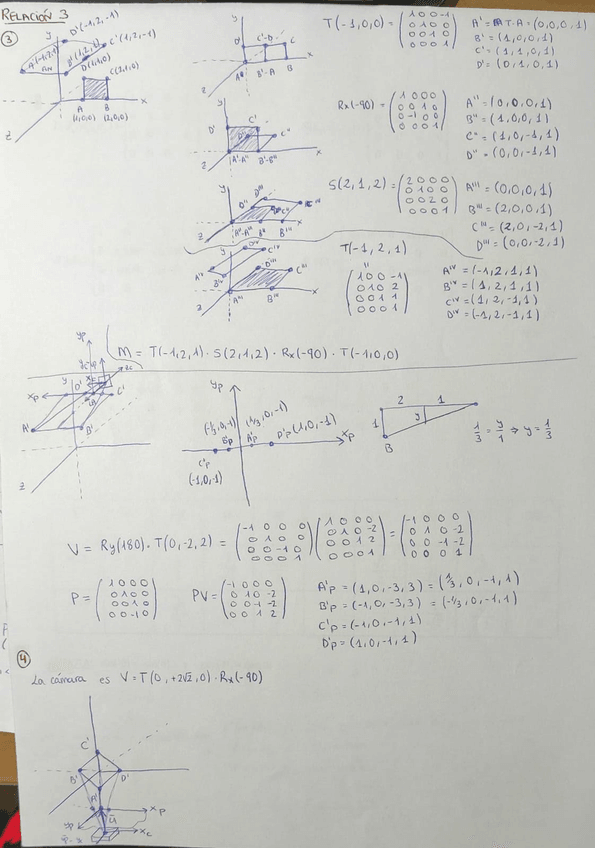 RELACIÓN 3
3
y
D'(-1,2,-1)
C'(1,2,-1)
A'(-1,2,1)
B'(1,2,1)
D(1,1,0)
C(2,1,0)
A
B
x
(1,0,0) (2,0,0)
z
y
D'
C'-D
C
A'
B'-A
B
x
z
T(-1,0,0) = (1 0 0 -1
0 1 0 0
0 0 1 0
0 0 0 1)
A' = T·A = (0,0,0,1)
B' = (1,0,0,1)
C' = (1,1,0,1)
D' = (0,1,0,1)
D'
C'
D''
C''
A'-A''
B'-B''
x
z
Rx(-90) = (1 0 0 0
0 0 1 0
0 -1 0 0
0 0 0 1)
A'' = (0,0,0,1)
B'' = (1,0,0,1)
C'' = (1,0,-1,1)
D'' = (0,0,-1,1)
y
D'''
D''
C''
C'''
A''-A'''
B''
B'''
x
z
S(2,1,2) = (2 0 0 0
0 1 0 0
0 0 2 0
0 0 0 1)
A''' = (0,0,0,1)
B''' = (2,0,0,1)
C''' = (2,0,-2,1)
D''' = (0,0,-2,1)
DIV
CIV
AIV
BIV
D'''
C'''
A'''
x
z
T(-1,2,1)
"
(1 0 0 -1
0 1 0 2
0 0 1 1
0 0 0 1)
AIV = (-1,2,1,1)
BIV = (1,2,1,1)
CIV = (1,2,-1,1)
DIV = (-1,2,-1,1)
M = T(-1,2,1) · S(2,1,2) · Rx(-90) · T(-1,0,0)
yp
y
D'
xp
C'
A'
B'
z
yp
(-1/3,0,-1)
(1/3,0,-1)
B'p
A'p
D'p(1,0,-1)
xp
C'p
(-1,0,-1)
2
1
1
y
B
1/3 = y/1 ⇒ y = 1/3
V = Ry(180) · T(0,-2,2) = (-1 0 0 0
0 1 0 0
0 0 -1 0
0 0 0 1) (1 0 0 0
0 1 0 -2
0 0 1 2
0 0 0 1) = (-1 0 0 0
0 1 0 -2
0 0 -1 -2
0 0 0 1)
P = (1 0 0 0
0 1 0 0
0 0 1 0
0 0 -1 0)
PV = (-1 0 0 0
0 1 0 -2
0 0 -1 -2
0 0 1 2)
A'p = (1,0,-3,3) = (1/3,0,-1,1)
B'p = (-1,0,-3,3) = (-1/3,0,-1,1)
C'p = (-1,0,-1,1)
D'p = (1,0,-1,1)
4
La cámara es V = T(0,+2√2,0) · Rx(-90)
C'
B'
D'
A'
xp
yp
xc